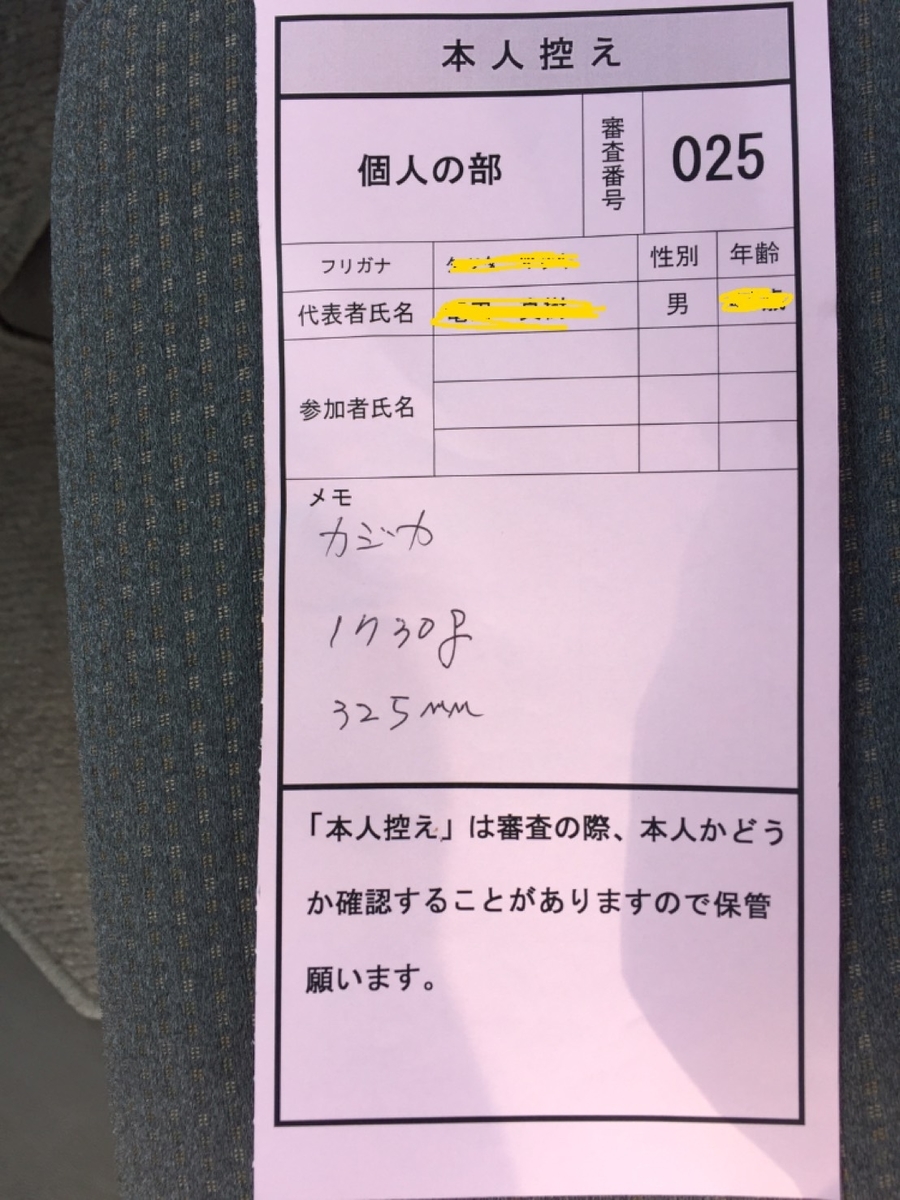 本人控え
個人の部 審査番号 025
フリガナ 性別 年齢
代表者氏名 男
参加者氏名
メモ
カジカ
1730g
325mm
「本人控え」は審査の際、本人かどう
か確認することがありますので保管
願います。